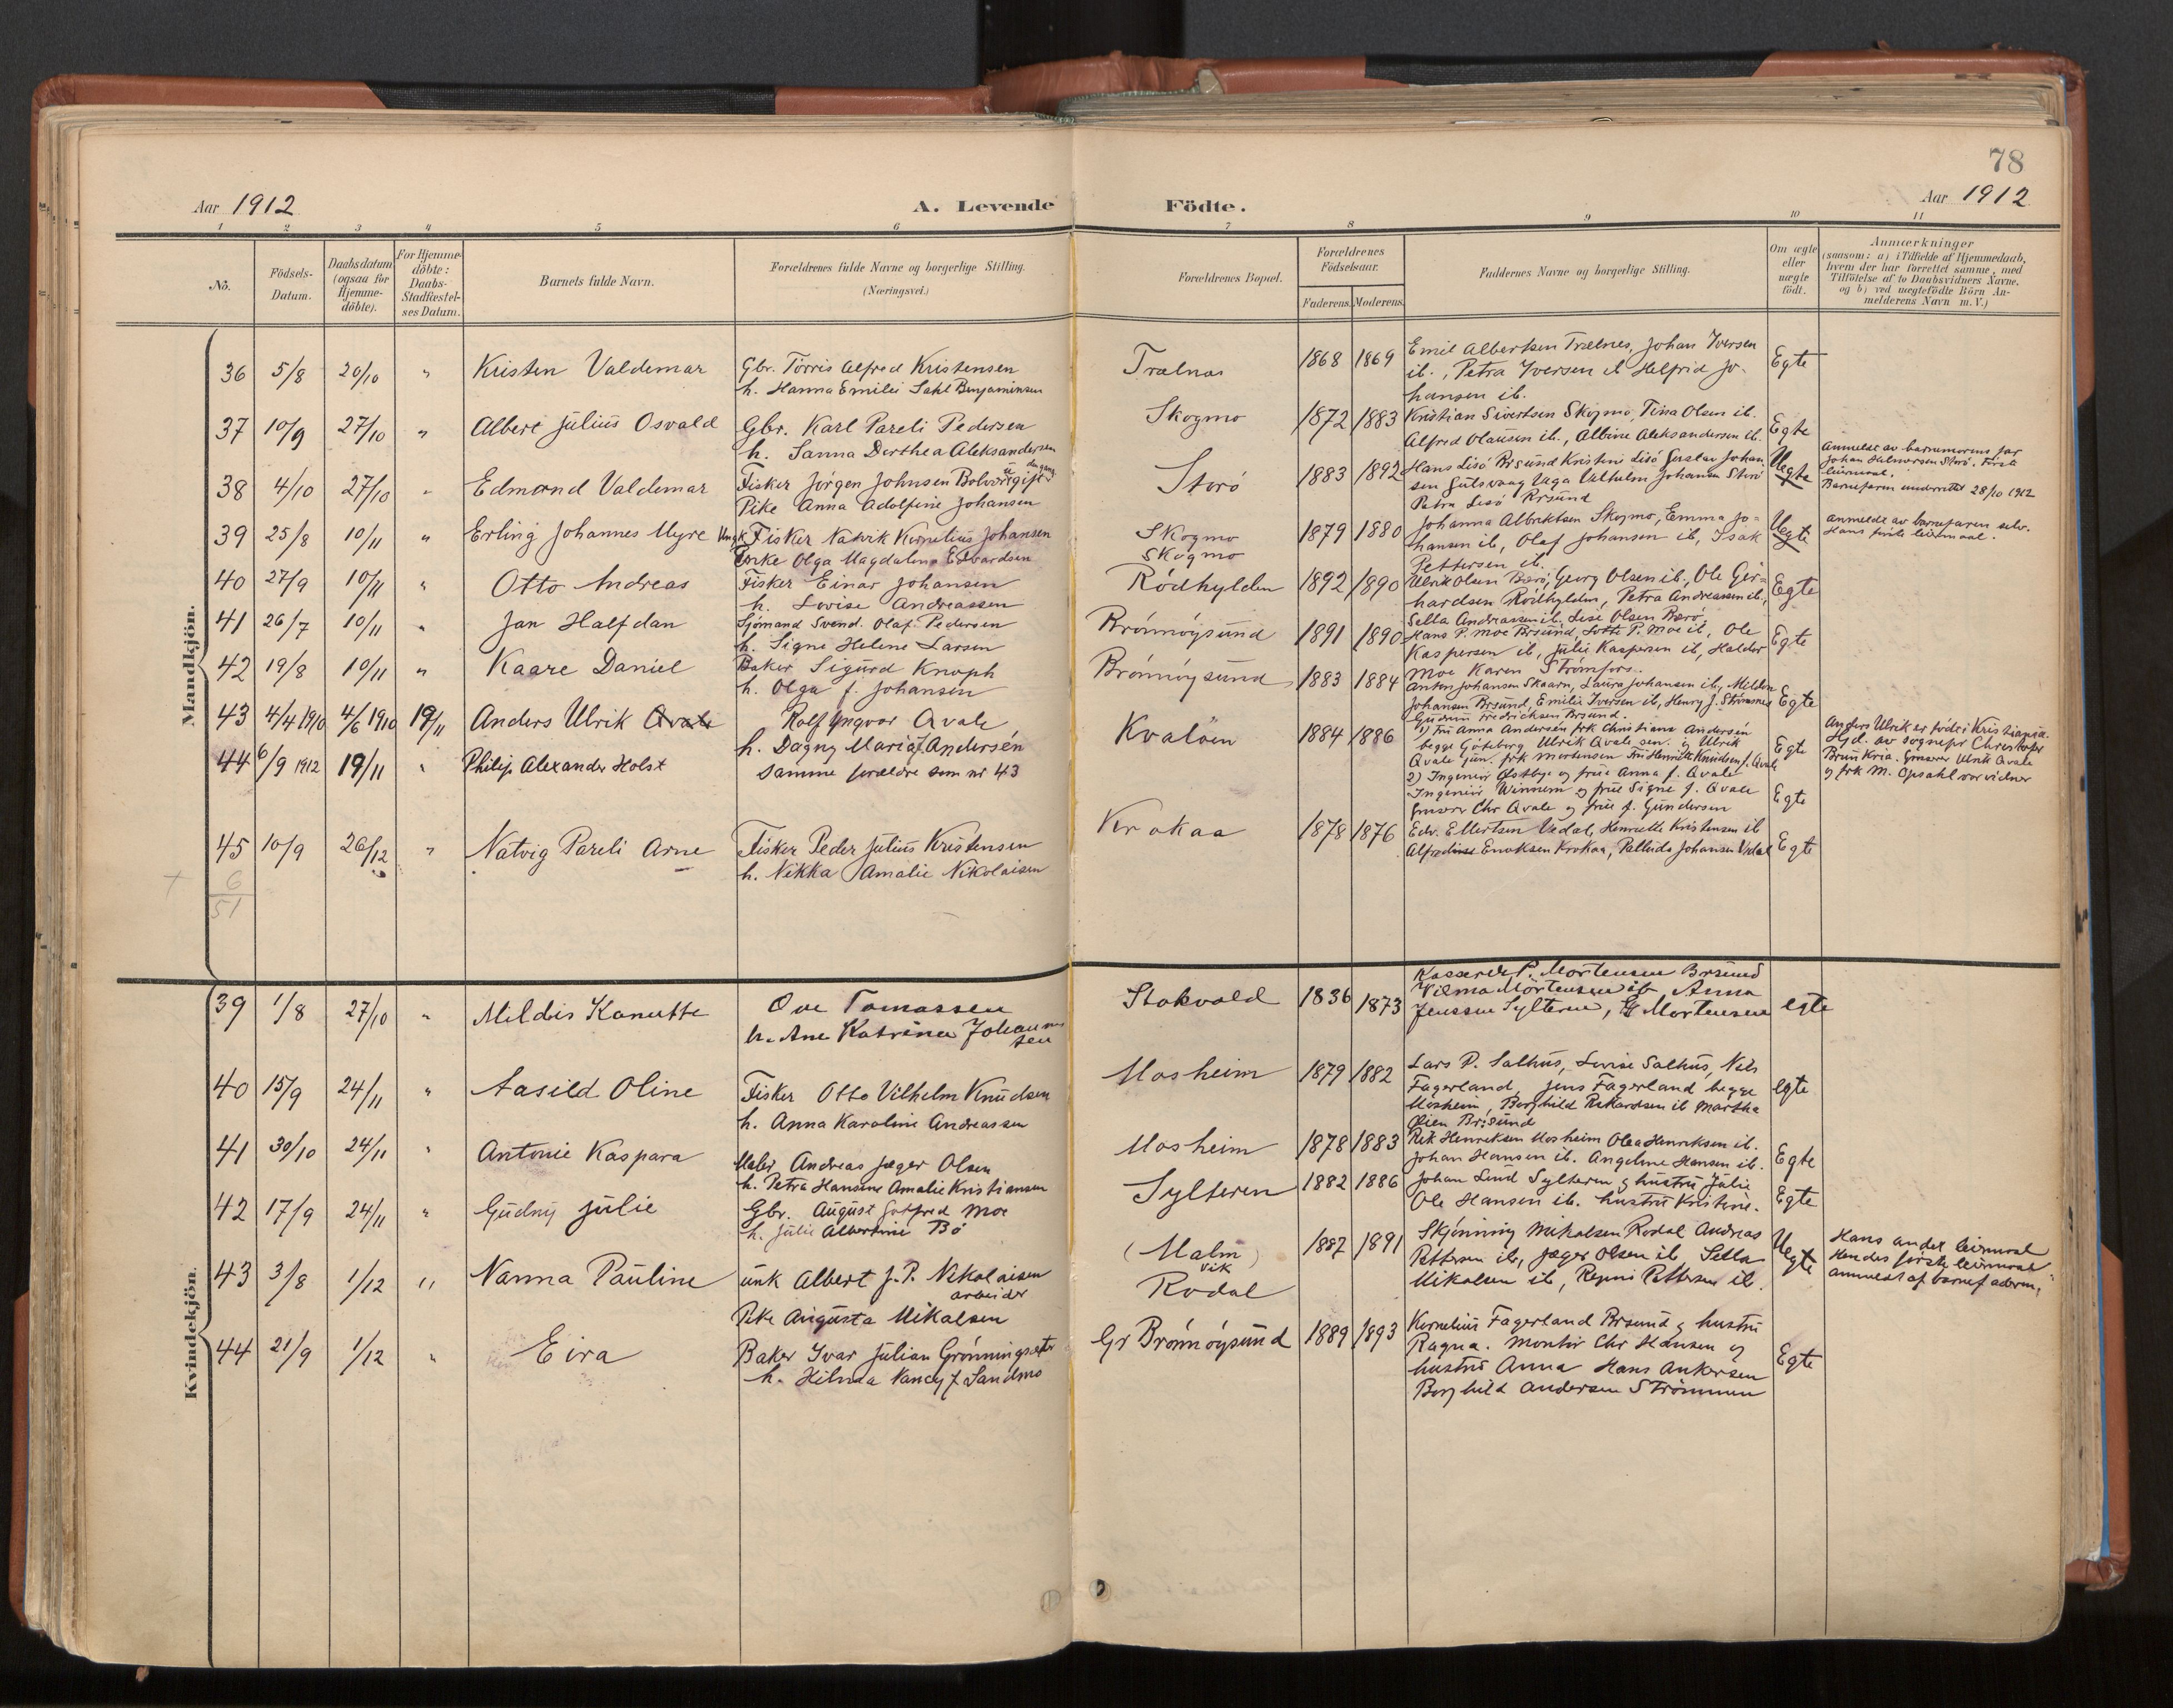 78
Aar 1912
A. Levende Födte.
Aar 1912
1 2 3 4 5 6 7 8 9 10 11
No.
Födsels-Datum.
Daabsdatum (ogsaa for Hjemme-döbte).
For Hjemme-döbte: Daabs-Stadfæstel-ses Datum.
Barnets fulde Navn.
Forældrenes fulde Navne og borgerlige Stilling.
(Næringsvei.)
Forældrenes Bopæl.
Forældrenes Födselsaar.
Faderens. Moderens.
Faddernes Navne og borgerlige Stilling.
Om ægte eller uægte födt.
Anmærkninger
(saasom: a) i Tilfælde af Hjemmedaab,
hvem der har forrettet samme, med
Tilföielse af to Daabsvidners Navne.
og b) ved uægtefödte Börn An-
melderens Navn m.V.)
Mandkjön.
36 5/8 20/10 " Kristen Valdemar
Gbr. Torris Alfred Kristensen
h. Hanna Emilie Sahl Benjaminsen
Trælnas 1868 1869
Emil Albertsen Trælnes, Johan Iversen
ib., Petra Iversen ib Helfrid Jo-
hansen ib.
Egte
37 10/9 27/10 " Albert Julius Osvald
Gbr. Karl Pareli Pedersen
h. Sanna Dorthea Aleksandersen
Skogmo 1872 1883
Kristian Sivertsen Skogmo, Tina Olsen ib.
Alfred Olausen ib., Albine Aleksandersen ib.
Egte
38 4/10 27/10 " Edmond Valdemar
Fisker Jørgen Johnsen Bolvær
Pike Anna Adolfine Johansen
Storö 1883 1892
Hans Lisö Brsund Kristine Lisö Gustav Johan
sen Vilhelm Johansen Storö
Petra Lisö Brsund
Uegte
Anmeldt av barnemorens far
Johan Halvorsen Storö. Første
leirmaal.
Barnefaren underrettet 28/10 1912
39 25/8 10/11 " Erling Johannes Myre
Ungk Fisker Natvik Kornelius Johansen
Enke Olga Magdalena Edvardsen
Skogmo
Skogmo
1879 1880
Johanna Albriktsen Skogmo, Emma Jo-
hansen ib, Olaf Johansen ib, Isak
Pettersen ib.
Uegte
Anmeldt av barnefaren selv.
Hans første leirmaal.
40 27/9 10/11 " Otto Andreas
Fisker Einar Johansen
h. Lovise Andreassen
Rödhylden 1892 1890
Ulrik Olsen Bærö, Georg Olsen ib., Ole Ger-
hardsen Rödhylden, Petra Andreassen ib.,
Sella Andreassen ib, Lise Olsen Bærö.
Egte
41 26/7 10/11 " Jan Halfdan
Sjömand Svend. Olaf Pedersen
h. Signe Helene Larsen
Brönnöysund 1891 1890
Hans P. Moe Brsund, Lotte P. Moe ib, Ole
Kaspersen ib, Julie Kaspersen ib, Halder
Moe Karen Strömfors.
Egte
42 19/8 10/11 " Kaare Daniel
Baker Sigurd Knoph
h. Olga f. Johansen
Brönnöysund 1883 1884
Anton Johansen Skaarn, Laura Johansen ib, Milda
Johansen Brsund, Emilie Iversen ib, Henry J. Strömsnes
Gudrun Fredriksen Brsund.
Egte
43 4/4 1910 4/6 1910 19/11 Anders Ulrik Qvale
Rolf Yngvar Qvale
h. Dagny Marie f. Andersén
Kvalöen 1884 1886
1) Fru Anna Andersén frk Christiane Andersén
begge Göteborg Ulrik Qvale sen. og Ulrik
Qvale jun. frk Mortensen Fru Henriette Knudsen f. Qvale
Egte
Anders Ulrik er föde i Kristiania.
Hjd. av sognepr Christopher
Bruun Kria. Grosserer Ulrik Qvale
og frk M. Opsahl var vidner
44 6/9 1912 19/11 " Philip Alexander Holst
Samme forældre som nr 43
2) Ingeniör Østbye og frue Anna f. Qvale
Ingeniör Winnem og frue Signe f. Qvale
Grosserer Chr Qvale og frue f. Gundersen
Egte
45 10/9 26/12 " Natvig Pareli Arne
Fisker Peder Julius Kristensen
h. Nikka Amalie Nikolaisen
Krokaa 1878 1876
Edv. Ellertsen Vedal, Henriette Kristensen ib
Alfredine Enoksen Krokaa, Palleida Johansen Vedal
Egte
+ 6
51
Kvindekjön.
39 1/8 27/10 " Mildis Kanutte
Ove Tomassen
h. Ane Katrina Johannessen
Stokvold 1836 1873
Kasserer P. Mortensen Brsund
Vilma Mortensen ib Anna
Jenssen Sylteren, E Mortensen
egte
40 15/9 24/11 " Aasild Oline
Fisker Otto Vilhelm Knudsen
h. Anna Karoline Andreassen
Mosheim 1879 1882
Lars P. Salhus, Lovise Salhus, Nils
Fagerland, Jens Fagerland begge
Mosheim, Borghild Rikardsen ib Martha
Øien Brsund
egte
41 30/10 24/11 " Antonie Kaspara
Maler Andreas Jæger Olsen
h. Petra Hansine Amalie Kristiansen
Mosheim 1878 1883
Rik Henriksen Mosheim Olea Henriksen ib.
Johan Hansen ib. Angeline Hansen ib.
Egte
42 17/9 24/11 " Gudny Julie
Gbr. August Gotfred Moe
h. Julie Albertine Bö
Sylteren 1882 1886
Johan Lund Sylteren og hustru Julie
Ole Hansen ib. hustru Kristine.
Egte
43 3/8 1/12 " Nanna Pauline
unk Albert J. P. Nikolaisen
arbeider
Pike Augusta Mikalsen
(Malm
vik)
Rodal
1887 1891
Skjönning Mikalsen Rodal Andreas
Pettersen ib, Jæger Olsen ib, Sella
Mikalsen ib, Regine Pettersen ib.
Uegte
Hans andet leirmaal
Hendes første leirmaal
anmeldt af barnefaderen.
44 21/9 1/12 " Eira
Baker Ivar Julian Grönningsæter
h. Hilma Nancy f Sandmo
Gr Brönnöysund 1889 1893
Kornelius Fagerland Brsund og hustru
Ragna. Montör Chr Hansen og
hustru Anna Hans Ankersen
Borghild Andersen Strömmen
Egte